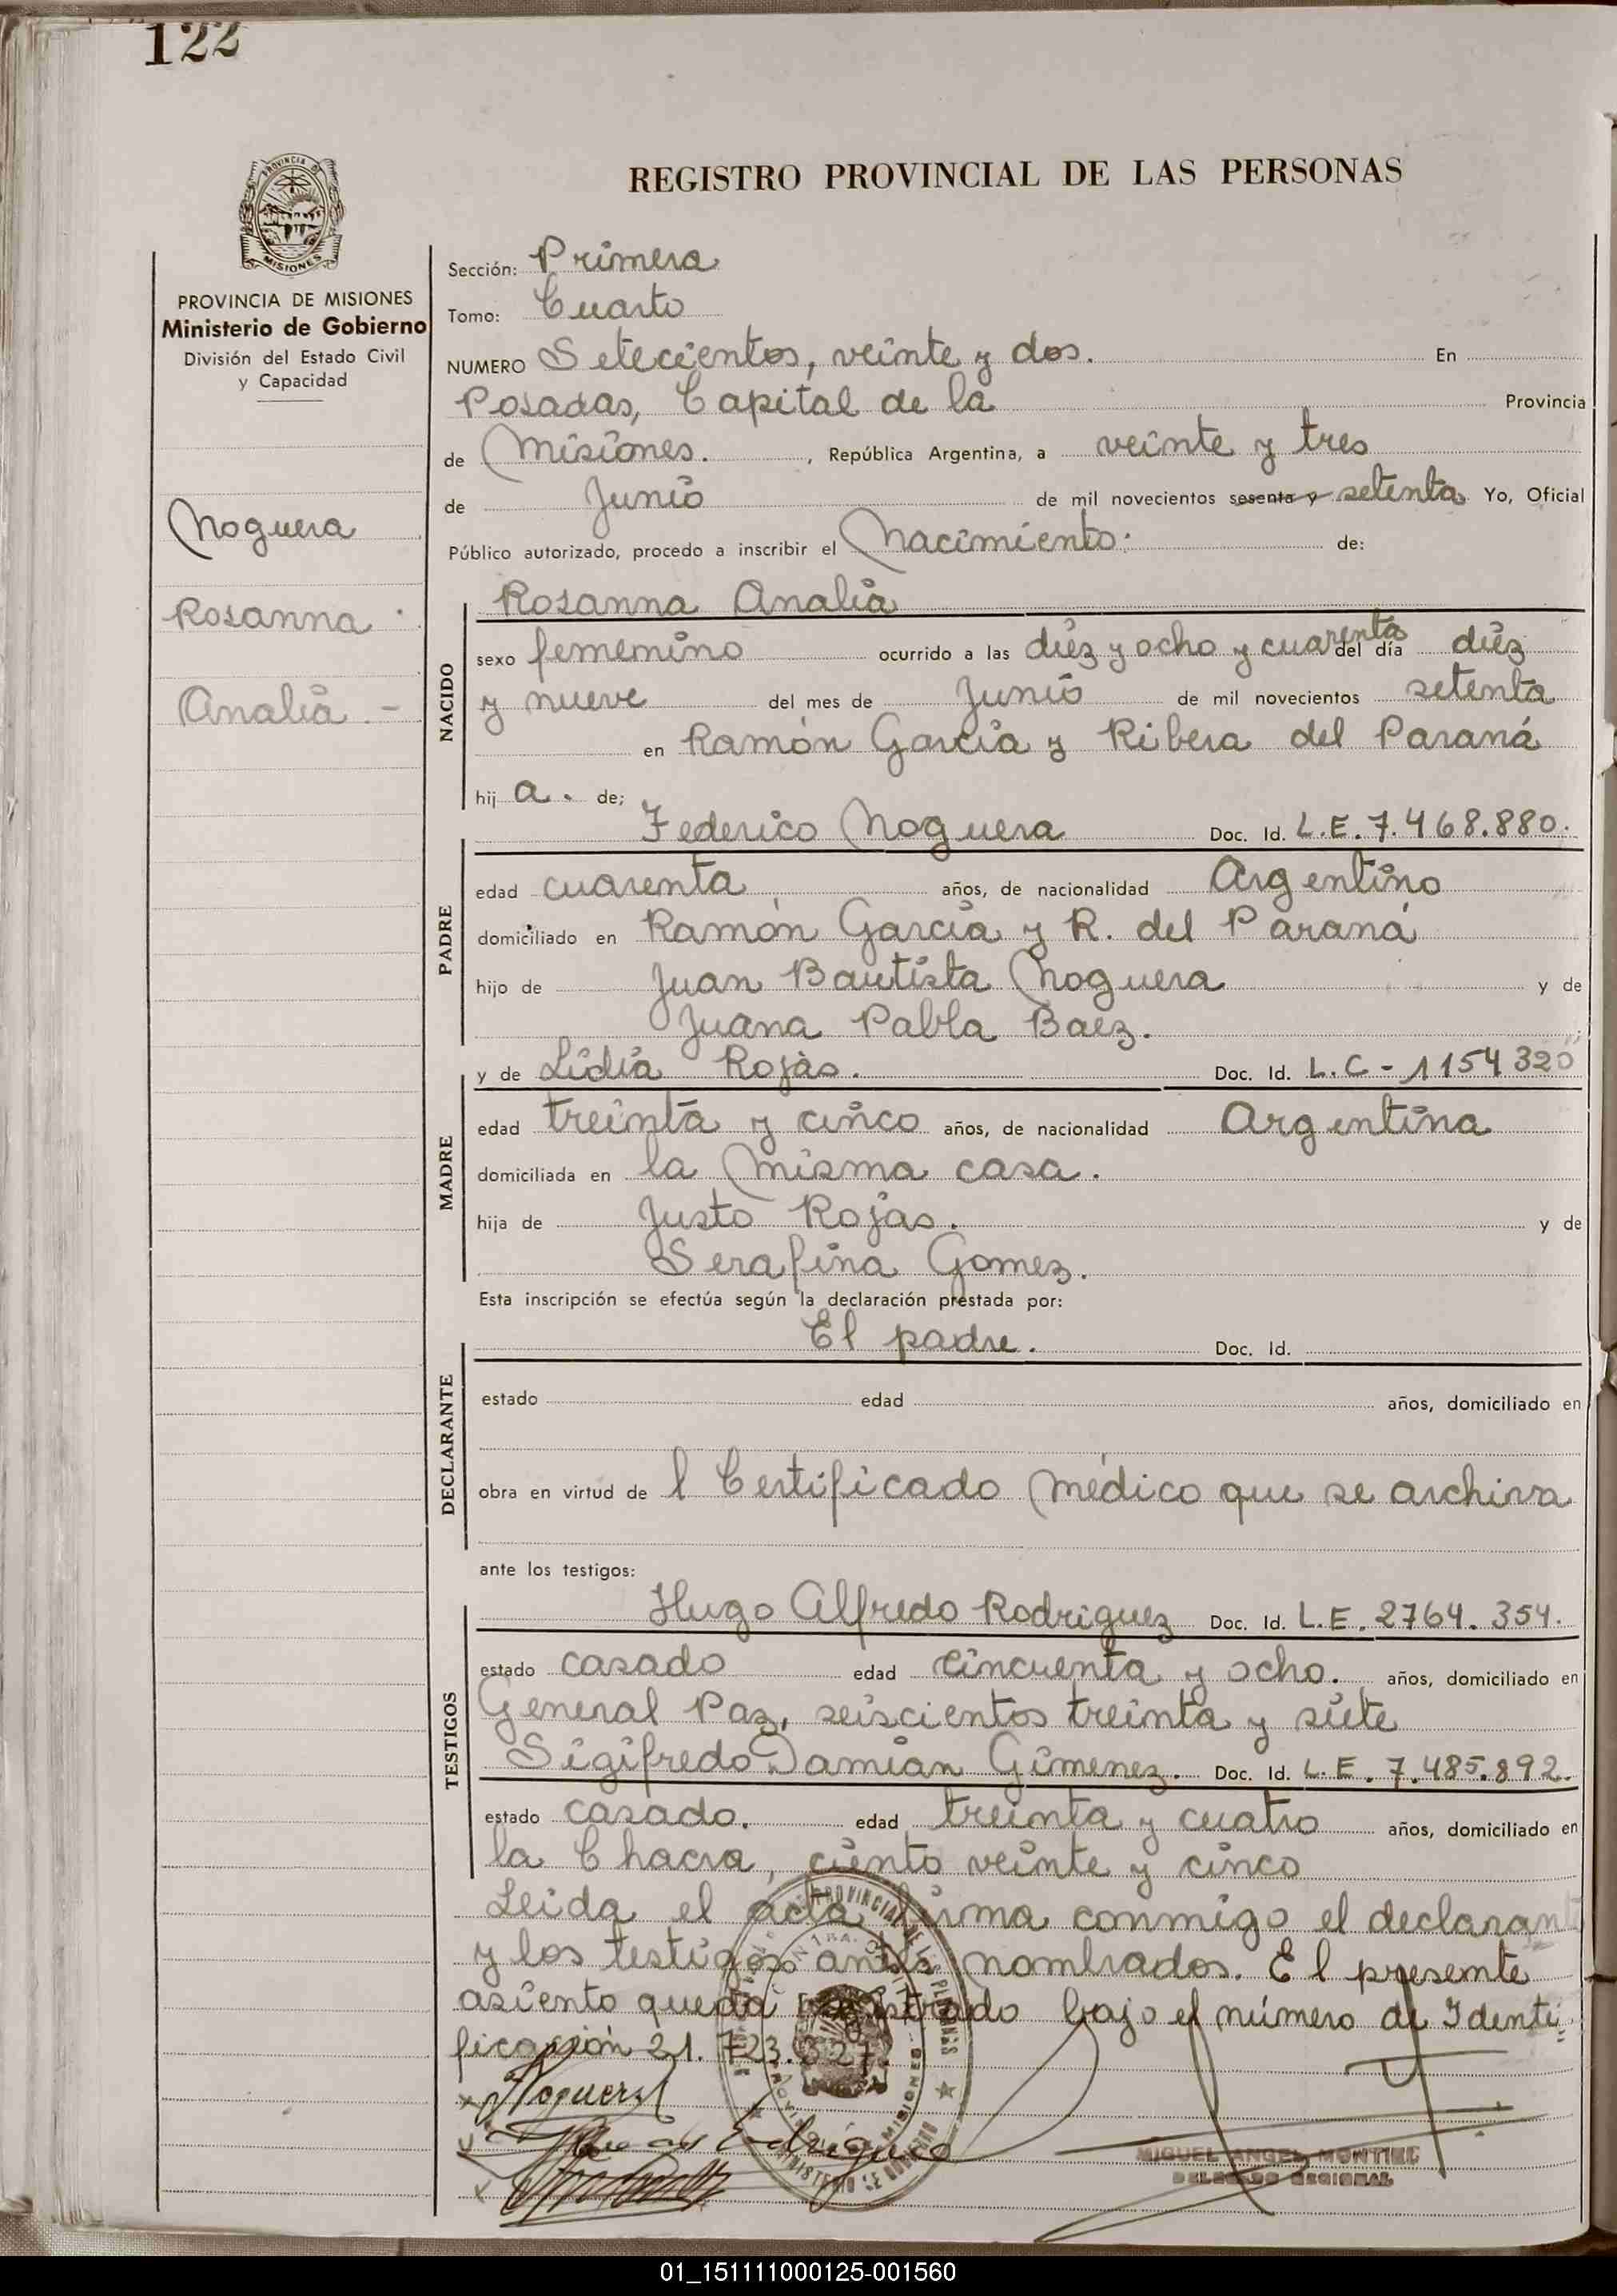 122
REGISTRO PROVINCIAL DE LAS PERSONAS
PROVINCIA DE MISIONES
Ministerio de Gobierno
División del Estado Civil
y Capacidad
Noguera
Rosanna
Analia.-
Sección: Primera
Tomo: Cuarto
NUMERO Setecientos, veinte y dos. En
Posadas, Capital de la Provincia
de Misiones. , República Argentina, a veinte y tres
de Junio de mil novecientos sesenta y setenta Yo, Oficial
Público autorizado, procedo a inscribir el Nacimiento. de:
Rosanna Analia
NACIDO
sexo femenino ocurrido a las diéz y ocho y cuarenta del día diéz
y nueve del mes de Junio de mil novecientos setenta
en Ramón García y Ribera del Paraná
hij a. de;
Federico Noguera Doc. Id. L.E. 7.468.880.
PADRE
edad cuarenta años, de nacionalidad Argentino
domiciliado en Ramón García y R. del Paraná
hijo de Juan Bautista Noguera y de
Juana Pabla Baez.
y de Lidia Rojas. Doc. Id. L.C - 1154320
MADRE
edad treinta y cinco años, de nacionalidad Argentina
domiciliada en la misma casa.
hija de Justo Rojas. y de
Serafina Gomez.
Esta inscripción se efectúa según la declaración prestada por:
El padre. Doc. Id.
DECLARANTE
estado edad años, domiciliado en
obra en virtud de l Certificado médico que se archiva
ante los testigos:
Hugo Alfredo Rodriguez Doc. Id. L.E. 2764.354.
TESTIGOS
estado casado edad cincuenta y ocho. años, domiciliado en
General Paz, seiscientos treinta y siete
Sigifredo Damian Gimenez. Doc. Id. L.E. 7.485.892.
estado casado. edad treinta y cuatro años, domiciliado en
la Chacra, ciento veinte y cinco
Leida el acta firma conmigo el declaran
y los testigos antes nombrados. El presente
asiento queda registrado bajo el número de Identi
ficación 21.723.327.
Noguera
Rodriguez
MIGUEL ANGEL MONTIEL
DELEGADO REGIONAL
01_151111000125-001560